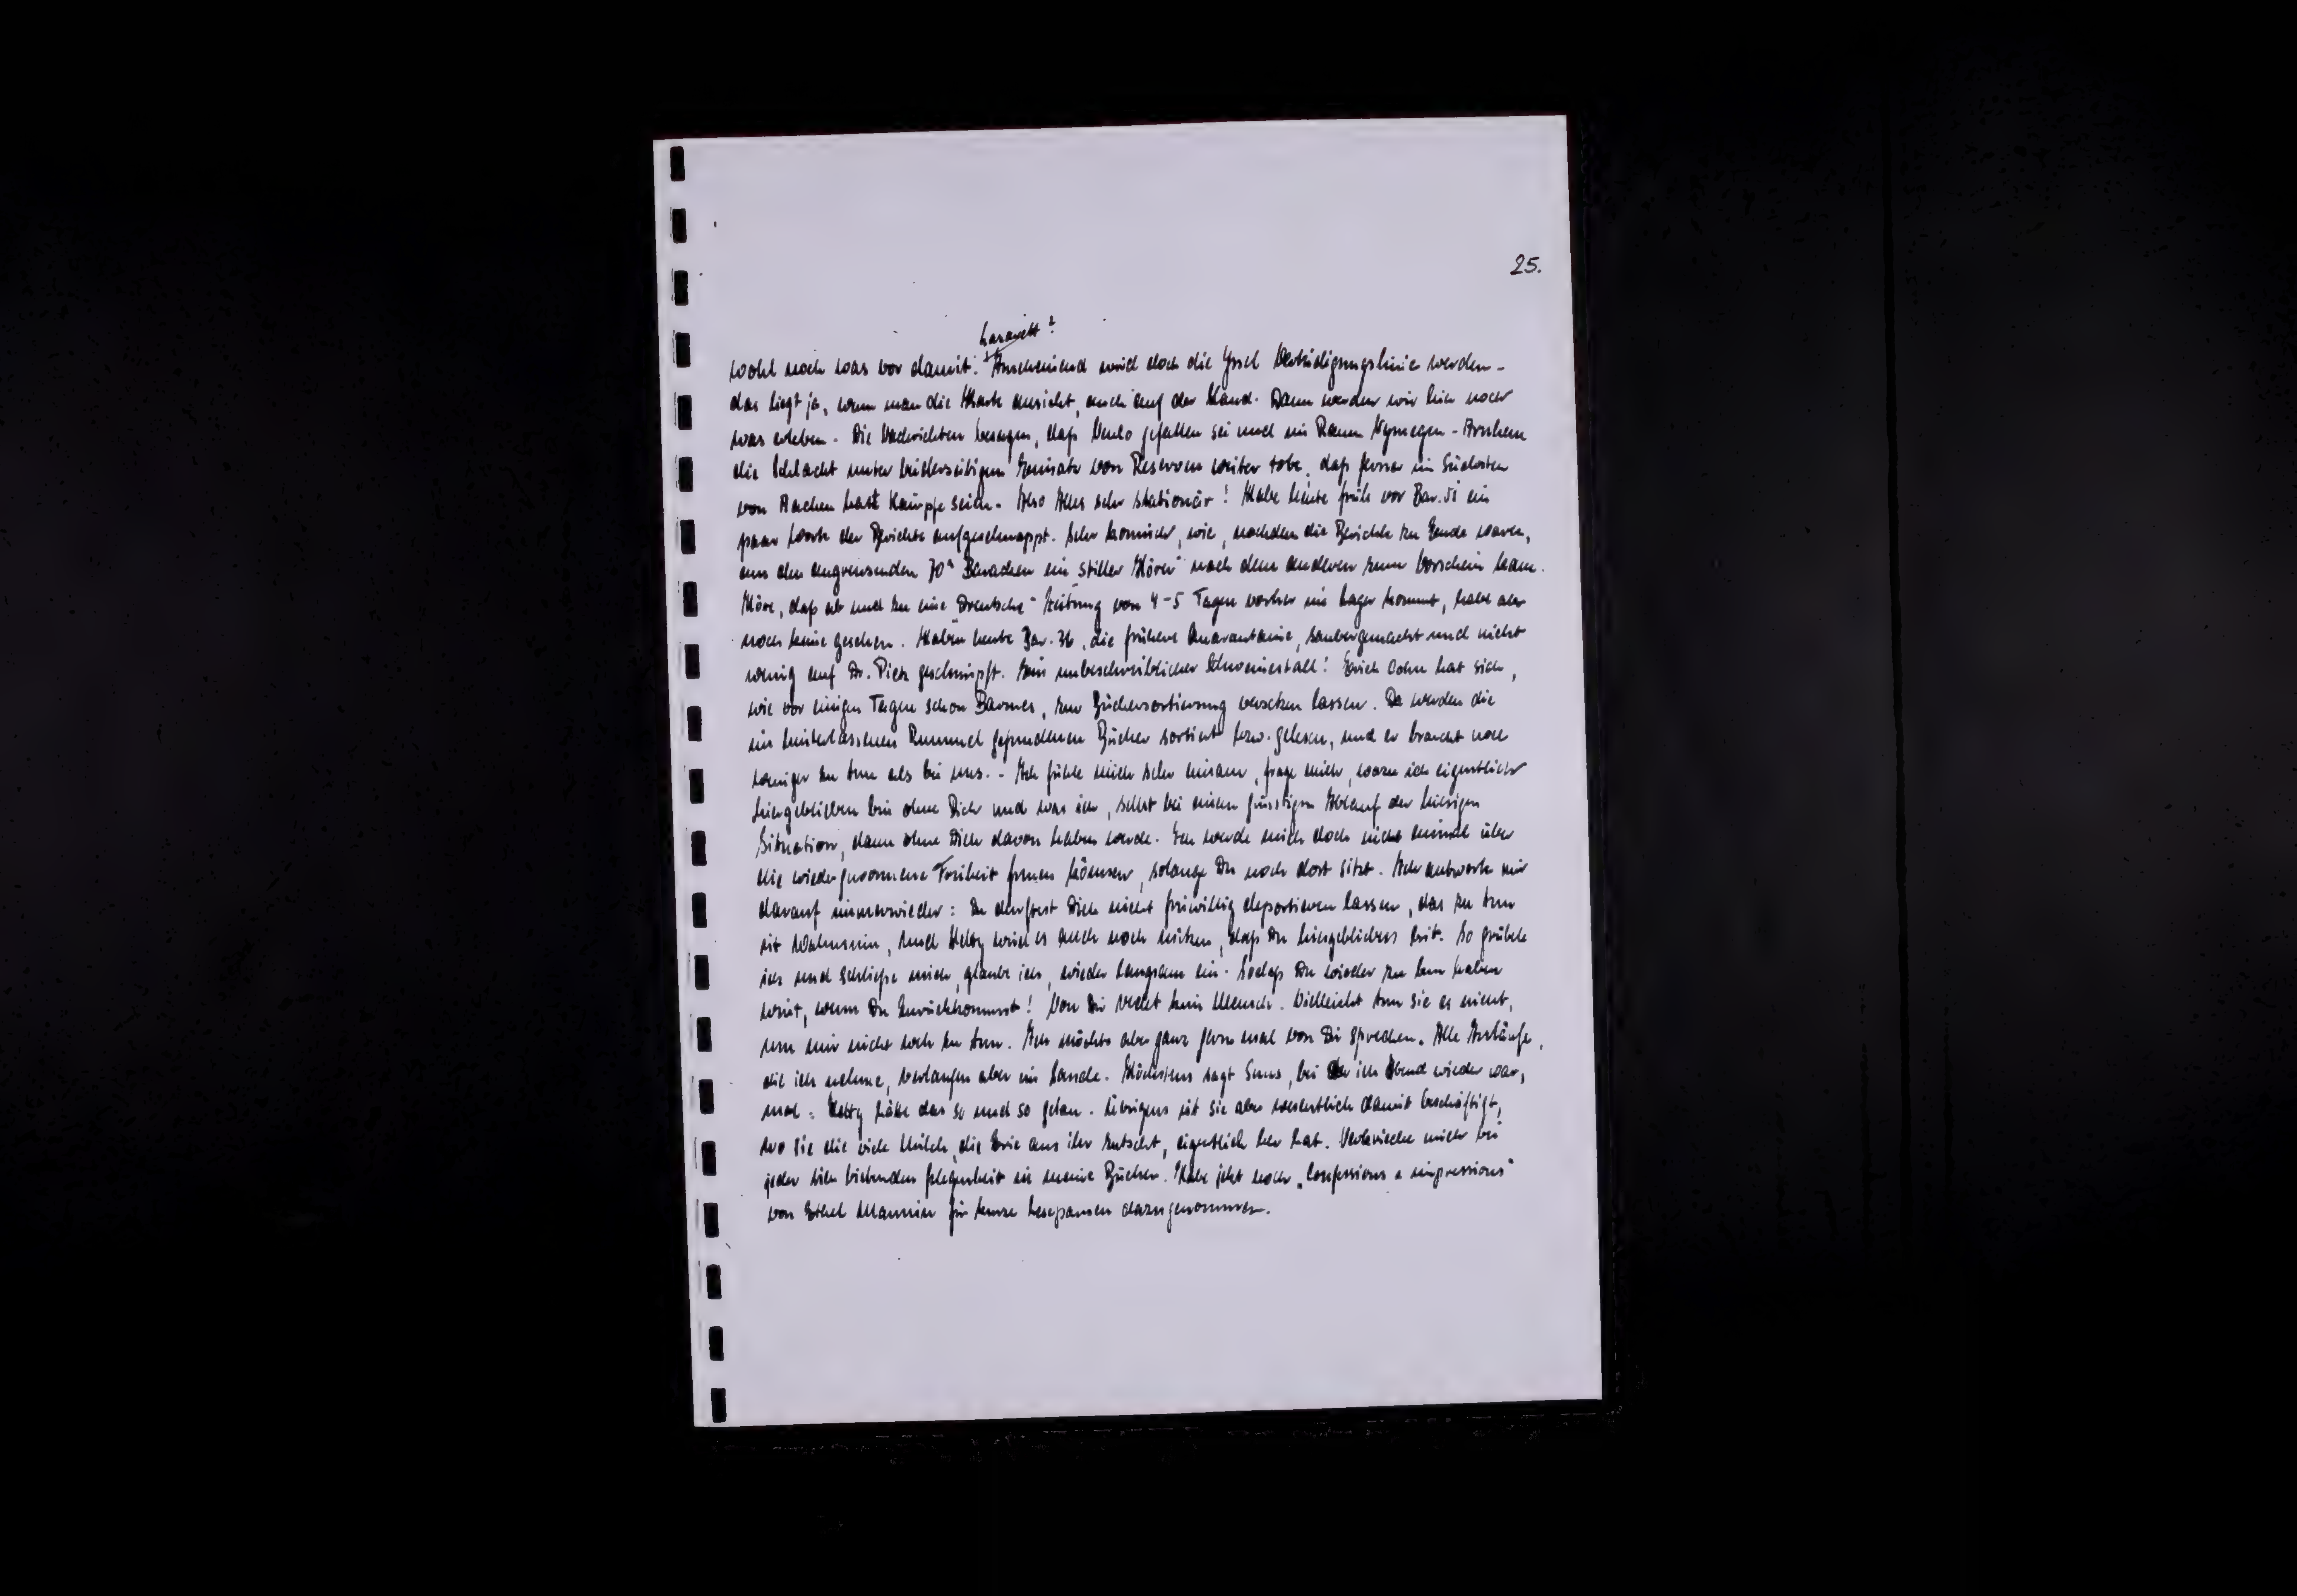 25.
Lazarett?
wohl noch was vor damit. Anscheinend wird doch die Yssel Verteidigungslinie werden -
das liegt ja, wenn man die Karte ansieht, auch auf der Hand. Dann werden wir hier noch
was erleben. Die Nachrichten besagen, dass Venlo gefallen sei und im Raum Nymegen - Arnhem
die Schlacht unter beiderseitigem Einsatz von Reserven weiter tobe, dass ferner im Südosten
von Aachen harte Kämpfe seien. Also Alles sehr stationär! Habe heute früh vor Bar. 51 ein
paar Worte der Berichte aufgeschnappt. Sehr komisch, wie, nachdem die Berichte zu Ende waren,
aus den angrenzenden 70er Baracken ein "stiller Hörer" nach dem anderen zum Vorschein kam.
Höre, dass ab und zu eine "Drentsche" Zeitung von 4-5 Tagen vorher ins Lager kommt, habe aber
noch keine gesehen. Haben heute Bar. 36, die frühere Quarantaine, saubergemacht und nicht
wenig auf Dr. Pick geschimpft. Ein unbeschreiblicher Schweinestall! Erich Cohn hat sich,
wie vor einigen Tagen schon Barmes, zur Büchersortierung versetzen lassen. Da werden die
im hinterlassenen Rummel gefundenen Bücher sortiert bzw. gelesen, und er braucht noch
weniger zu tun als bei uns. - Ich fühle mich sehr einsam, frage mich, wozu ich eigentlich
hiergeblieben bin ohne Dich und was ich, selbst bei einem günstigen Ablauf der hiesigen
Situation, dann ohne Dich davon haben werde. Ich werde mich doch nicht einmal über
die wiedergewonnene Freiheit freuen können, solange Du noch dort sitzt. Ich antworte mir
darauf immerwieder: Du durftest Dich nicht freiwillig deportieren lassen, das zu tun
ist Wahnsinn, und Hetty wird es auch noch nützen, dass Du hiergeblieben bist. So grüble
ich und schliesse mich, glaube ich, wieder langsam ein. Sodass Du wieder zu tun haben
wirst, wenn Du zurückkommst! Von Dir redet kein Mensch. Vielleicht tun sie es nicht,
um mir nicht weh zu tun. Ich möchte aber ganz gern mal von Dir sprechen. Alle Anläufe,
die ich nehme, verlaufen aber im Sande. Höchstens sagt Suus, bei der ich Abend wieder war,
mal: Hetty hätte das so und so getan. Übrigens ist sie aber wesentlich damit beschäftigt,
wo sie die viele Milch, die Evie aus ihr zutscht, eigentlich her hat. Verkrieche mich bei
jeder sich bietenden Gelegenheit in meine Bücher. Habe jetzt noch "Confessions & impressions"
von Ethel Mannin für kurze Lesepausen dazugenommen.